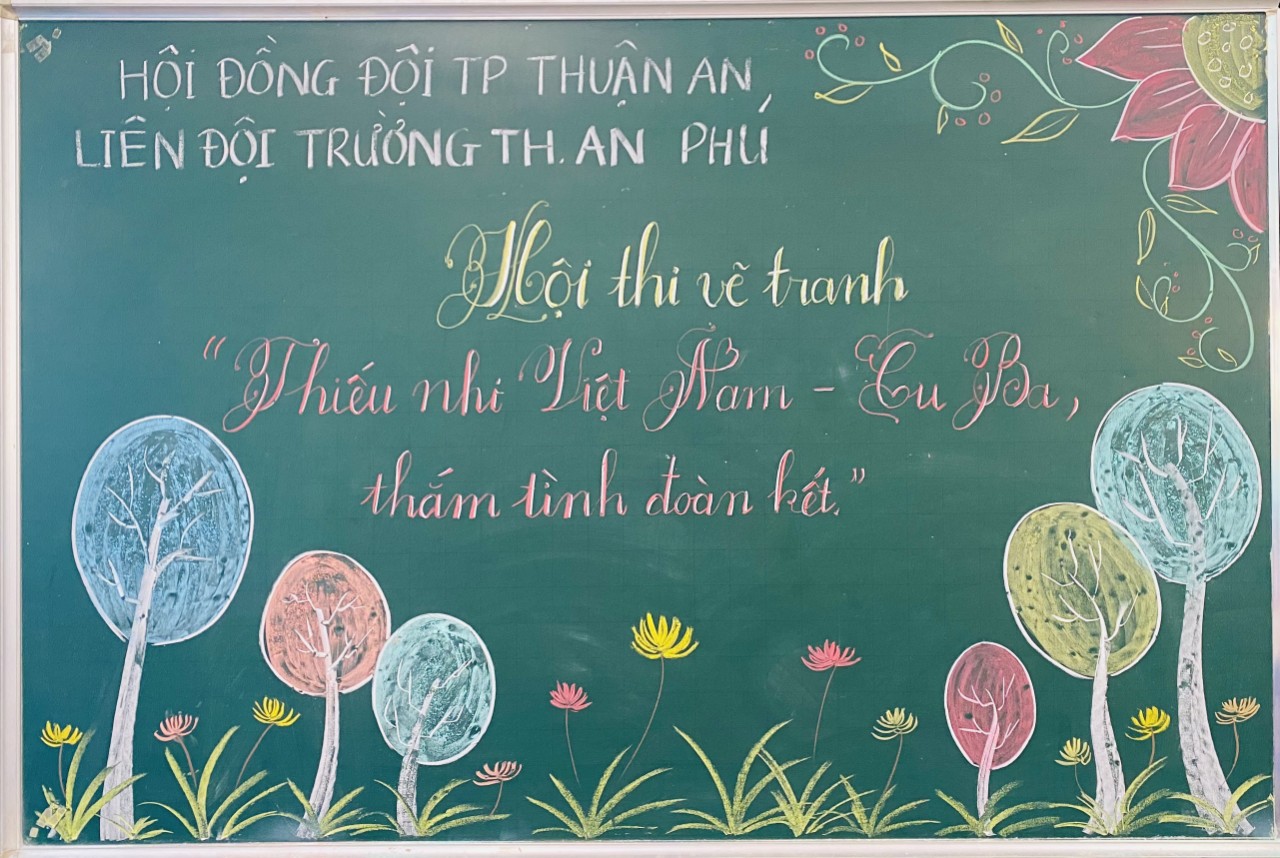 HỘI ĐỒNG ĐỘI TP THUẬN AN
LIÊN ĐỘI TRƯỜNG TH. AN PHÚ
Hội thi vẽ tranh
“Thiếu nhi Việt Nam - Cu Ba,
thắm tình đoàn kết.”